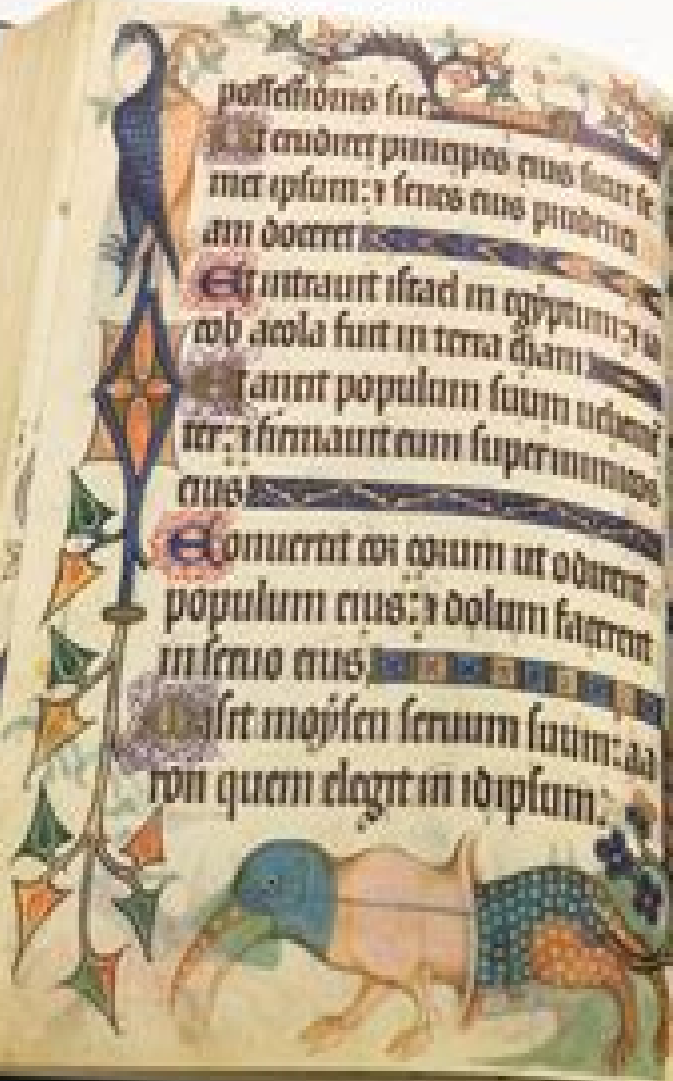 possessionis sue
Ut erudiret principes eius sicut se
met ipsum: ⁊ senes eius prudenci
am doceret
Et intrauit israel in egyptum: ⁊ ia
cob acola fuit in terra cham
Et auxit populum suum uehemēt
ter: ⁊ firmauit eum super inimicos
eius
Conuertit cor eorum ut odirent
populum eius: ⁊ dolum facerent
in seruo eius
Misit moysen seruum suum: aa
ron quem elegit in idipsum.